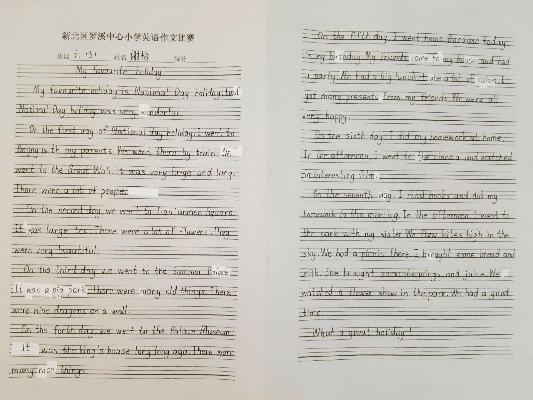 新北区罗溪中心小学英语作文比赛
班级 姓名 得分
My favourite holiday
My favourite holiday is National Day holiday. Last
National Day holiday was very wonderful.
On the first day of National day holiday. I went to
Beijing with my parents. We went there by train. We
went to the Great Wall. It was very large and long.
There were a lot of people
On the second day, we went to Tian'anmen Square.
It was large too. There were a lot of flowers. They
were very beautiful.
On the third day, we went to the Summer Palace.
It was a big park. There were many old things. There
were nine dragons on a wall.
On the forth day, we went to the Palace Museum.
It was the king's house long long ago. There were
many nice things.
On the fifth day, I went home. Because today
is my birthday. My friends come to my house and had
a party. We had a big lunch. I ate a lot of cakes. I
got many presents from my friends. We were all
very happy.
On the sixth day, I did my homework at home.
In the afternoon, I went to the cinema and watched
an interesting film.
On the seventh day, I read books and did my
homework in the morning. In the afternoon, I went to
the park with my sister. We flew kites high in the
sky. We had a picnic there. I brought some bread and
milk. She brought some dumplings and juice. We
watched a flower show in the park. We had a good
time.
What a great holiday!